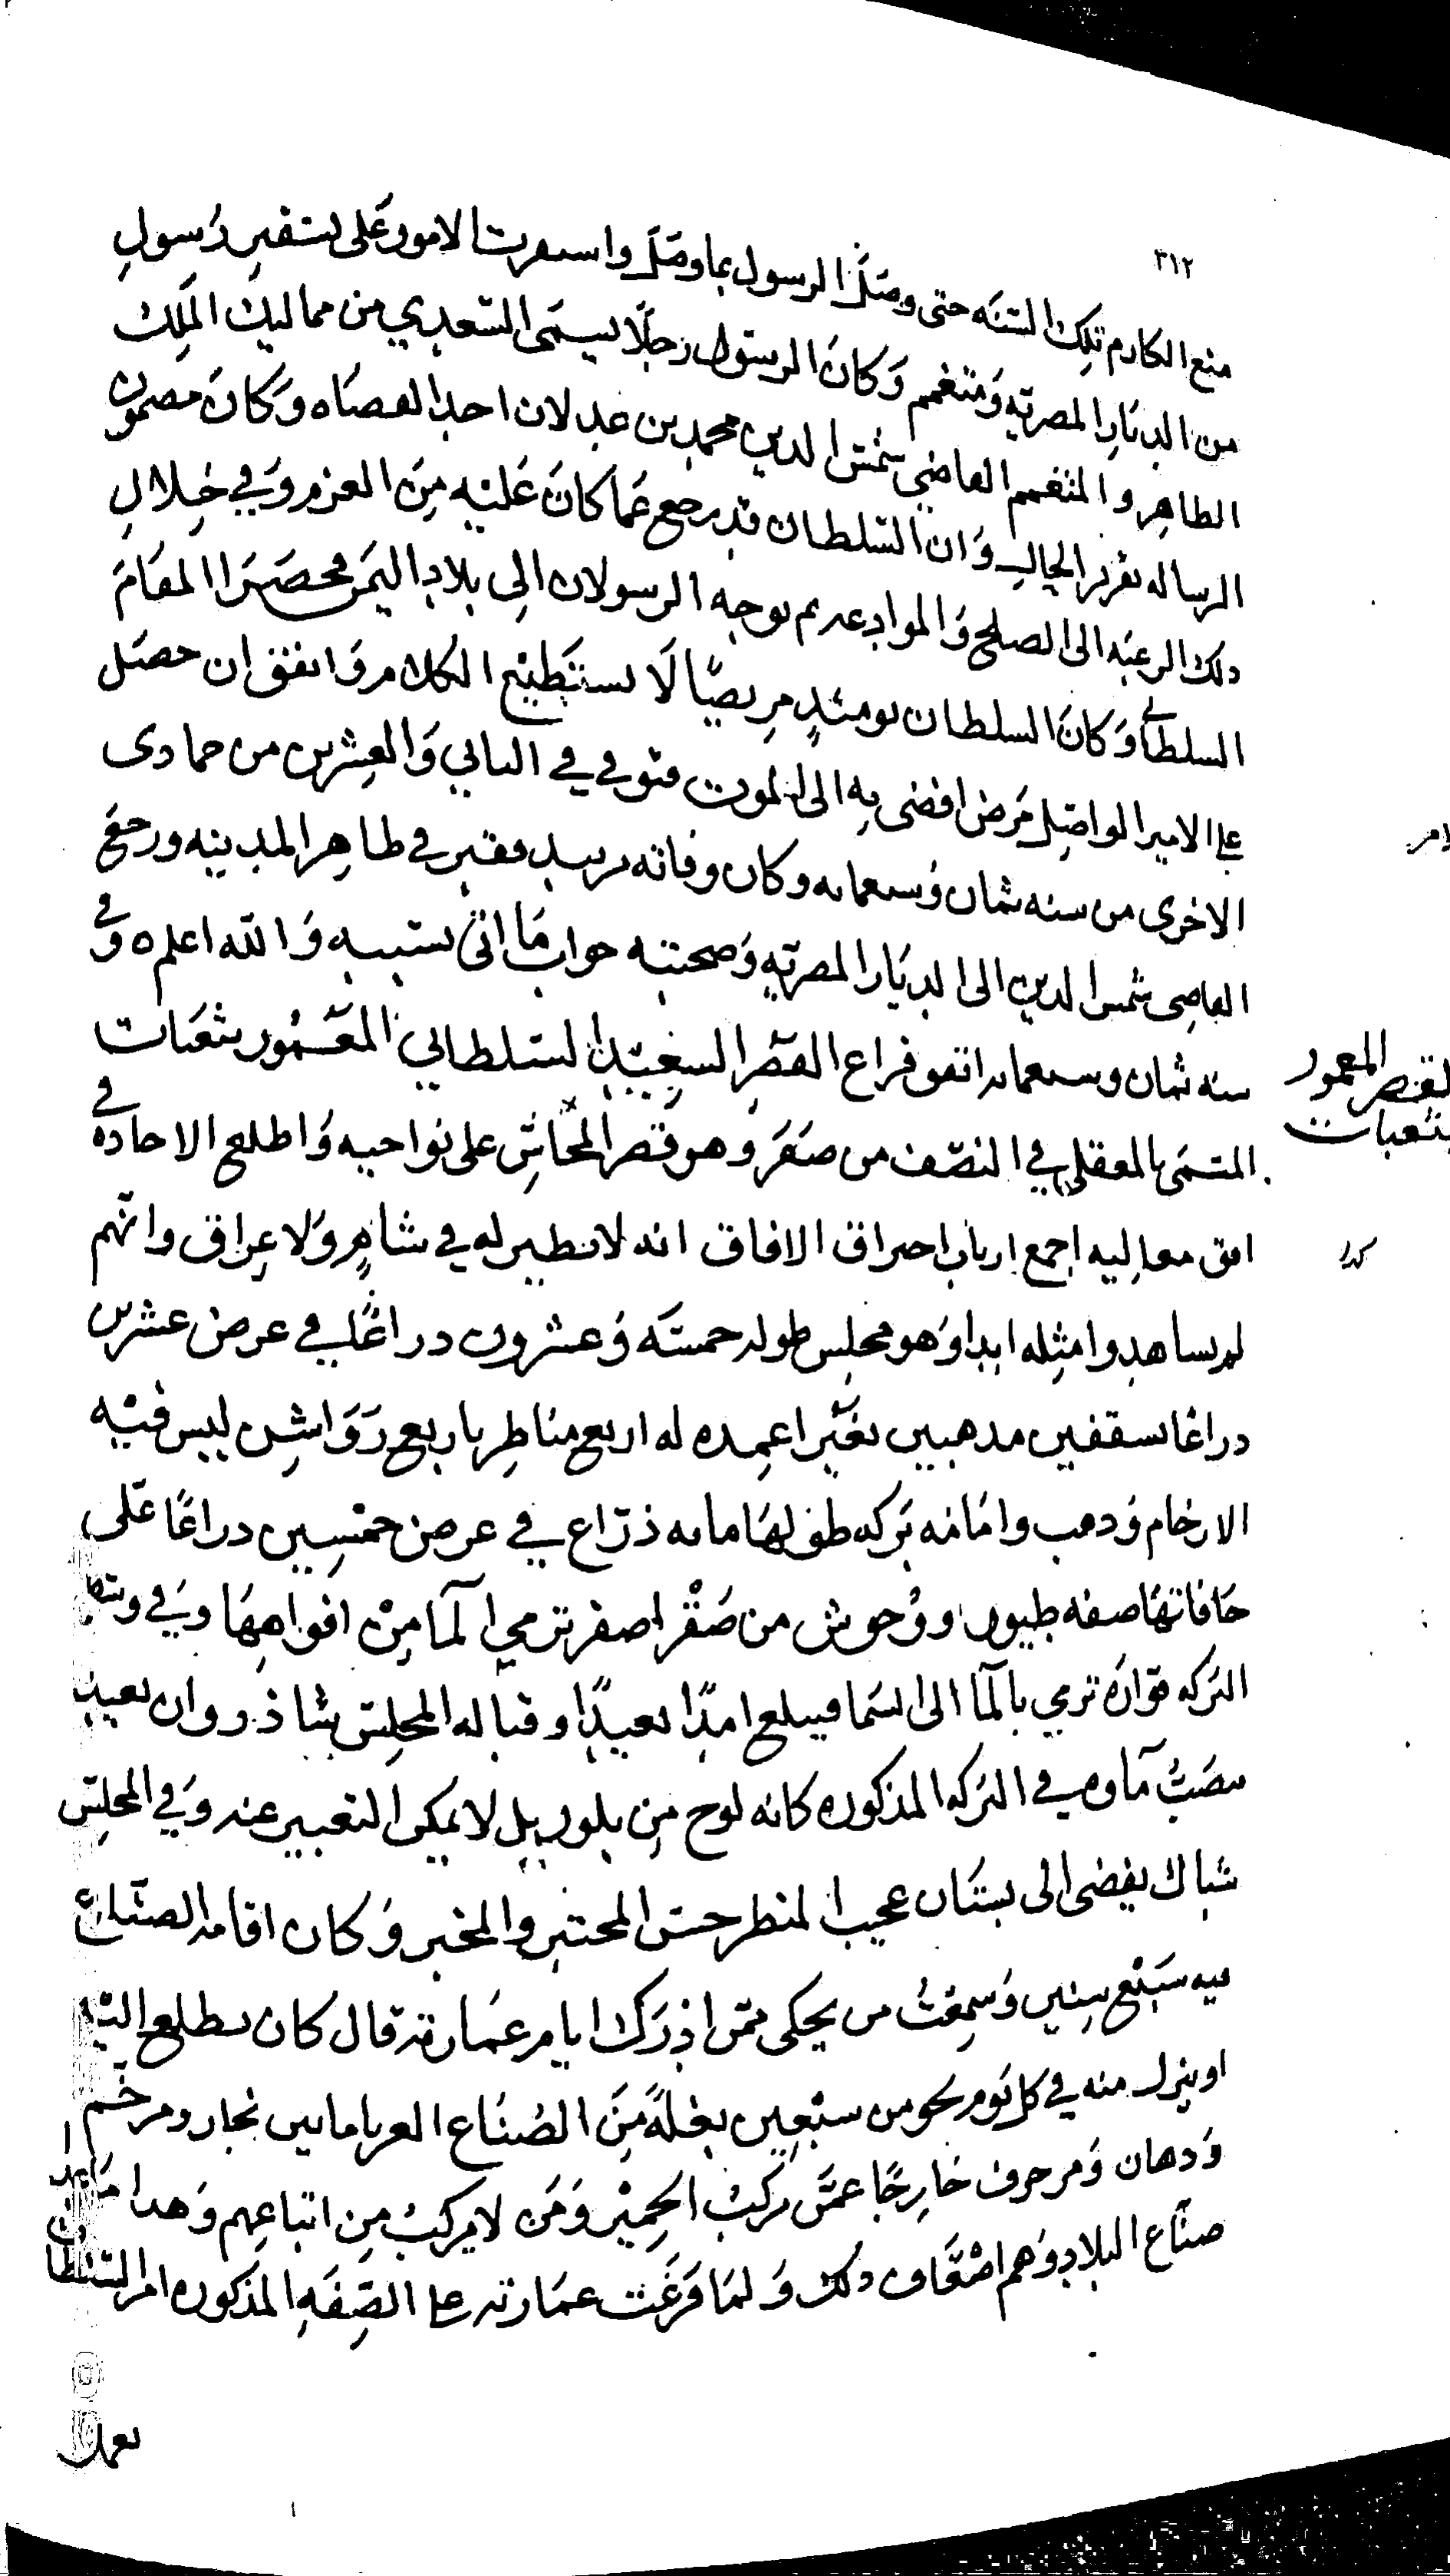 ٣١٢
منع الكارم تلك السنه حتى وصل الرسول بما وصل واسفرت الامور على تسفير رسول
من الديار المصريه ومتعمم وكان الرسول رجلا يسمى السعدي من مماليك الملك
الطاهر والمتعمم القاضي شمس الدين محمد بن عدلان احد القضاه وكان مضمون
الرساله تقرير الحال وان السلطان قد رجع عما كان عليه من العزم وفي خلال
ذلك الرغبه الى الصلح والموادعه ثم توجه الرسولان الى بلاد اليمن فحضرا المقام
السلطاني وكان السلطان يومئذ مريضا لا يستطيع الكلام واتفق ان حصل
على الامير الواصل مرض افضى به الى الموت فتوفي في الثاني والعشرين من جمادى
الاخرى من سنه ثمان وسبعمايه وكان وفاته بزبيد فقبر في ظاهر المدينه ورجع
القاضي شمس الدين الى الديار المصريه وصحبته جواب ما اتى بسببه والله اعلم ٥ وفي
سنه ثمان وسبعمايه اتفق فراغ القصر السعيد السلطاني المعمور بثعبات
المسمى بالمعقلي في النصف من صفر وهو قصر المحاسن على نواحيه واطلع الاجاده في
افق معاليه اجمع ارباب اخراق الافاق انه لا نظير له في شام ولا عراق وانهم
لم يشاهدوا مثله ابدا وهو مجلس طوله خمسه وعشرون ذراعا في عرض عشرين
ذراعا بسقفين مذهبين بغير اعمده له اربع مناظر باربع رواشن ليس فيه
الا رخام وذهب وامامه بركه طولها مايه ذراع في عرض خمسين ذراعا على
حافاتها صفه طيور ووحوش من صفر اصفر ترمي الما من افواهها وفي وسط
البركه فواره ترمي بالما الى السما فيبلغ امدا بعيدا وقباله المجلس شاذروان بعيد
مصب ماوه في البركه المذكوره كانه لوح من بلور بل لا يمكن التعبير عنه وفي المجلس
شباك يفضى الى بستان عجيب المنظر حسن المختبر والمخبر وكان اقامه الصناع
فيه سبع سنين وسمعت من يحكى ممن ادرك ايام عمارته قال كان يطلع اليه
او ينزل منه في كل يوم نحو من سبعين بغلة من الصناع الغربا مابين نجار ومرخم
ودهان ومزخرف خارجا عمن يركب الحمير ومن لا يركب من اتباعهم وهذا ما عدا
صناع البلاد وهم اضعاف ذلك ولما فرغت عمارته على الصفه المذكوره امر السلطان
بعمل
القصر المعمور
بثعبات
كدا